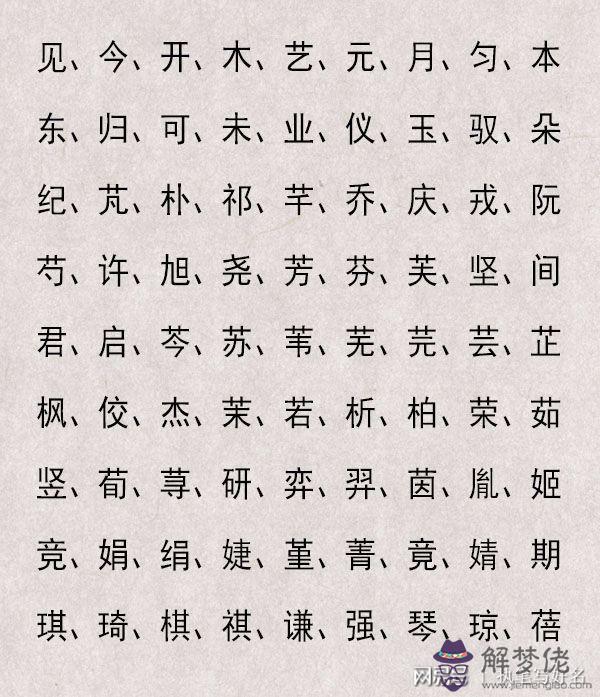 见、今、开、木、艺、元、月、匀、本
东、归、可、未、业、仪、玉、驭、朵
纪、芃、朴、祁、芊、乔、庆、戎、阮
芍、许、旭、尧、芳、芬、芙、坚、间
君、启、芩、苏、苇、芜、芫、芸、芷
枫、佼、杰、茉、若、析、柏、荣、茹
竖、荀、荨、研、弈、羿、茵、胤、姬
竞、娟、绢、婕、堇、菁、竟、婧、期
琪、琦、棋、祺、谦、强、琴、琼、蓓
网易号 | 执笔写好名
解梦佬
www.jiemenglao.com